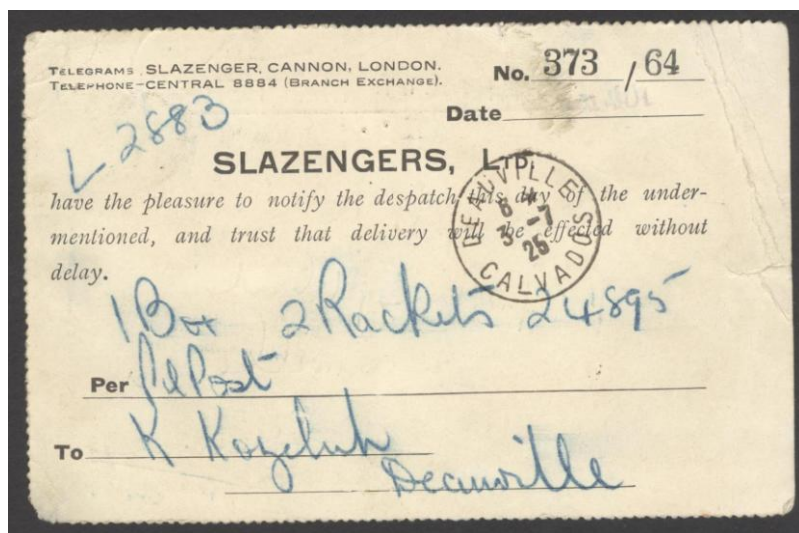 TELEGRAMS SLAZENGER, CANNON, LONDON.
TELEPHONE-CENTRAL 8884 (BRANCH EXCHANGE).
No. 373 / 64
Date
L 2883
SLAZENGERS, LTD.
have the pleasure to notify the despatch this day of the under-
mentioned, and trust that delivery will be effected without
delay.
DEAUVILLE
3 -7
25
CALVADOS
1 Box 2 Rackets 24895
Per Pl Post
To K Kozeluh
Deauville